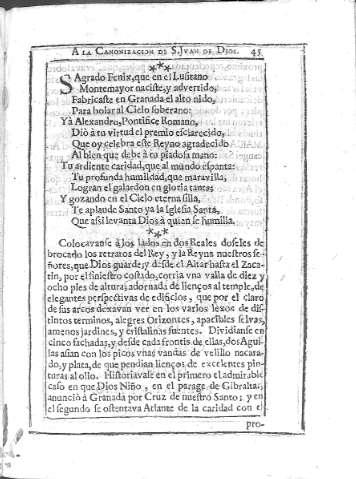 A LA CANONIZACION DE S. JVAN DE DIOS. 45
SAgrado Fenix, que en el Lusitano
Montemayor naciste, y advertido,
Fabricaste en Granada el alto nido,
Para bolar al Cielo soberano:
Yà Alexandro, Pontifice Romano,
Diò à tu virtud el premio esclarecido,
Que oy celebra este Reyno agradecido
Al bien que debe à tu piadosa mano:
Tu ardiente caridad, que al mundo espanta:
Tu profunda humildad, que maravilla;
Logran el galardon en gloria tanta;
Y gozando en el Cielo eterna silla,
Te aplaude Santo ya la Iglesia Santa,
Que assi levanta Dios à quien se humilla.
Colocavanse à los lados en dos Reales doseles de
brocado los retratos del Rey, y la Reyna nuestros se-
ñores, que Dios guarde; y desde el Altar hasta el Zaca-
tin, por el siniestro costado, corria vna valla de diez y
ocho pies de altura; adornada de lienços al temple, de
elegantes perspectivas de edificios, que por el claro
de sus arcos dexavan ver en los varios lexos de dis-
tintos terminos, alegres Orizontes, apacibles selvas,
amenos jardines, y cristalinas fuentes. Dividianse en
cinco fachadas; y desde cada frontis de ellas, dos Agui-
las asian con los picos vnas vandas de velillo nacara-
do, y plata, de que pendian lienços de excelentes pin-
turas al olio. Historiavase en el primero el admirable
caso en que Dios Niño, en el parage de Gibraltar,
anunciò à Granada por Cruz de nuestro Santo; y en
el segundo se ostentava Atlante de la caridad con el
pro-